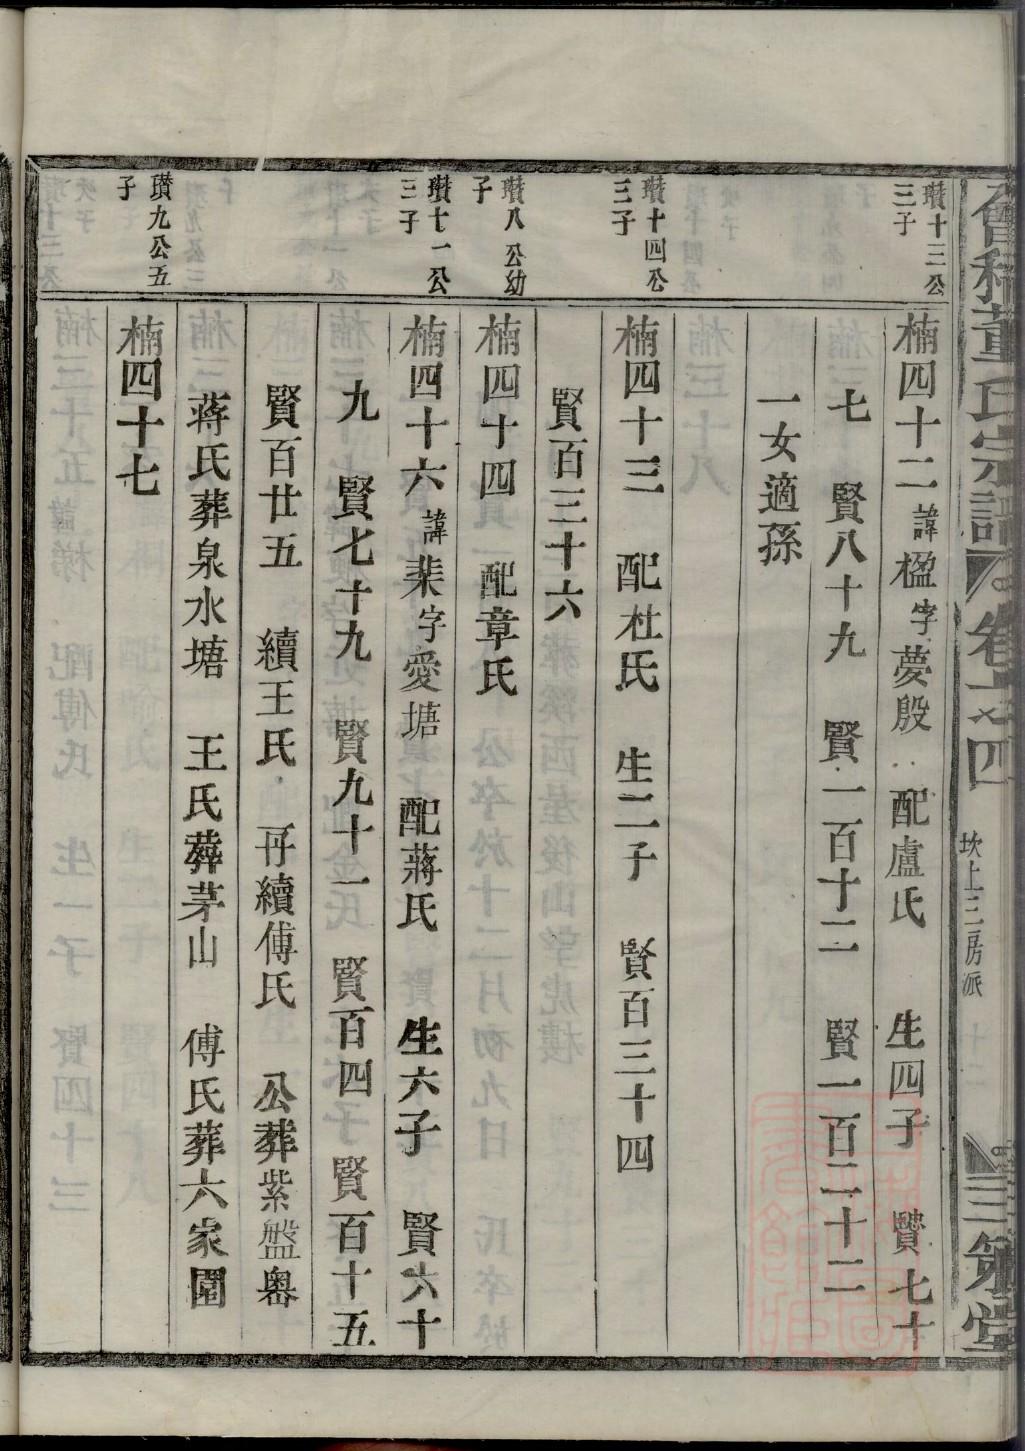 會稽董氏宗譜
卷之四
坎上三房派
三策堂
瓚十三公
三子
楠四十二諱楹字夢殷 配盧氏 生四子 賢七十
七 賢八十九 賢一百十二 賢一百二十二
一女適孫
瓚十四公
三子
楠四十三 配杜氏 生二子 賢百三十四
賢百三十六
瓚八公幼
子
楠四十四 配章氏
瓚十一公
三子
楠四十六諱棐字愛塘 配蔣氏 生六子 賢六十
九 賢七十九 賢九十一 賢百四 賢百十五
賢百廿五 續王氏 再續傅氏 公葬紫盤嶴
蔣氏葬泉水塘 王氏葬茅山 傅氏葬六家園
瓚九公五
子
楠四十七